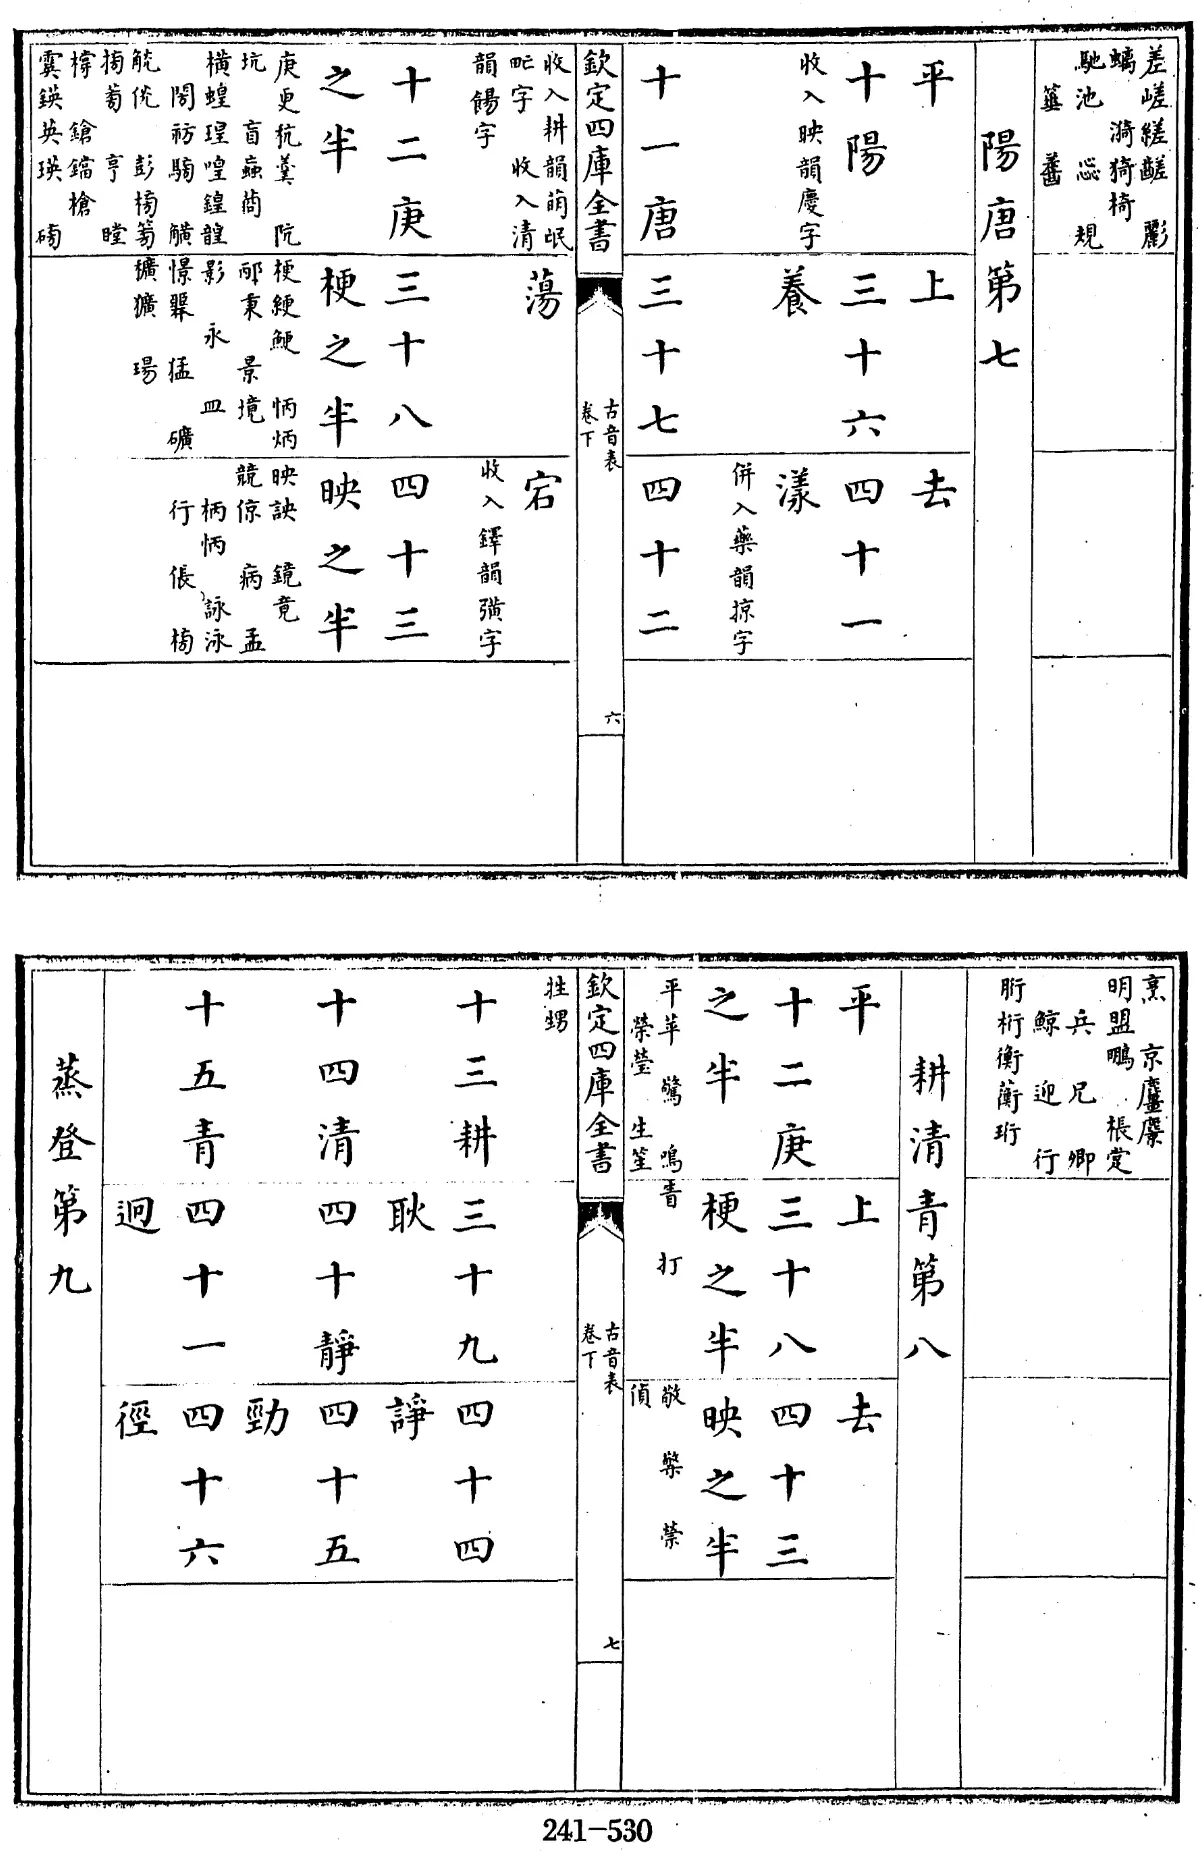 差嵯縒醝　酈
螭　漪猗椅
馳池　惢　規
簁　䔾
陽唐第七
平　上　去
十陽　三十六　四十一
養　漾
收入映韻慶字
併入藥韻掠字
十一唐　三十七　四十二
欽定四庫全書
古音表
卷下
六
蕩　宕
收入耕韻萌氓
甿字　收入清
韻餳字
收入鐸韻彉字
十二庚　三十八　四十三
之半　梗之半　映之半
庚更秔羹　阬
坑　盲蝱蝱
橫蝗瑝喤鍠韹
閍祊騯　觵
觥侊　彭榜篣
搒蒡　亨　瞠
樘　鎗鐺槍
霙鍈英瑛　磅
梗綆鯁　怲炳
邴秉　景境
影　永　皿
憬㬌　猛　礦
獷　瑒
映詇　鏡竟
競倞　病　孟
柄怲　詠泳
行　倀　榜
烹　京麠麖
明盟鵬　棖定
兵　兄　卿
鯨　迎　行
胻桁衡蘅珩
耕清青第八
平　上　去
十二庚　三十八　四十三
之半　梗之半　映之半
平苹　驚　鳴
榮瑩　生笙
眚　打
敬　檠　禜
偵
欽定四庫全書
古音表
卷下
七
牲甥
十三耕　三十九　四十四
耿　諍
十四清　四十靜　四十五
勁
十五青　四十一　四十六
迥　徑
蒸登第九
241-530